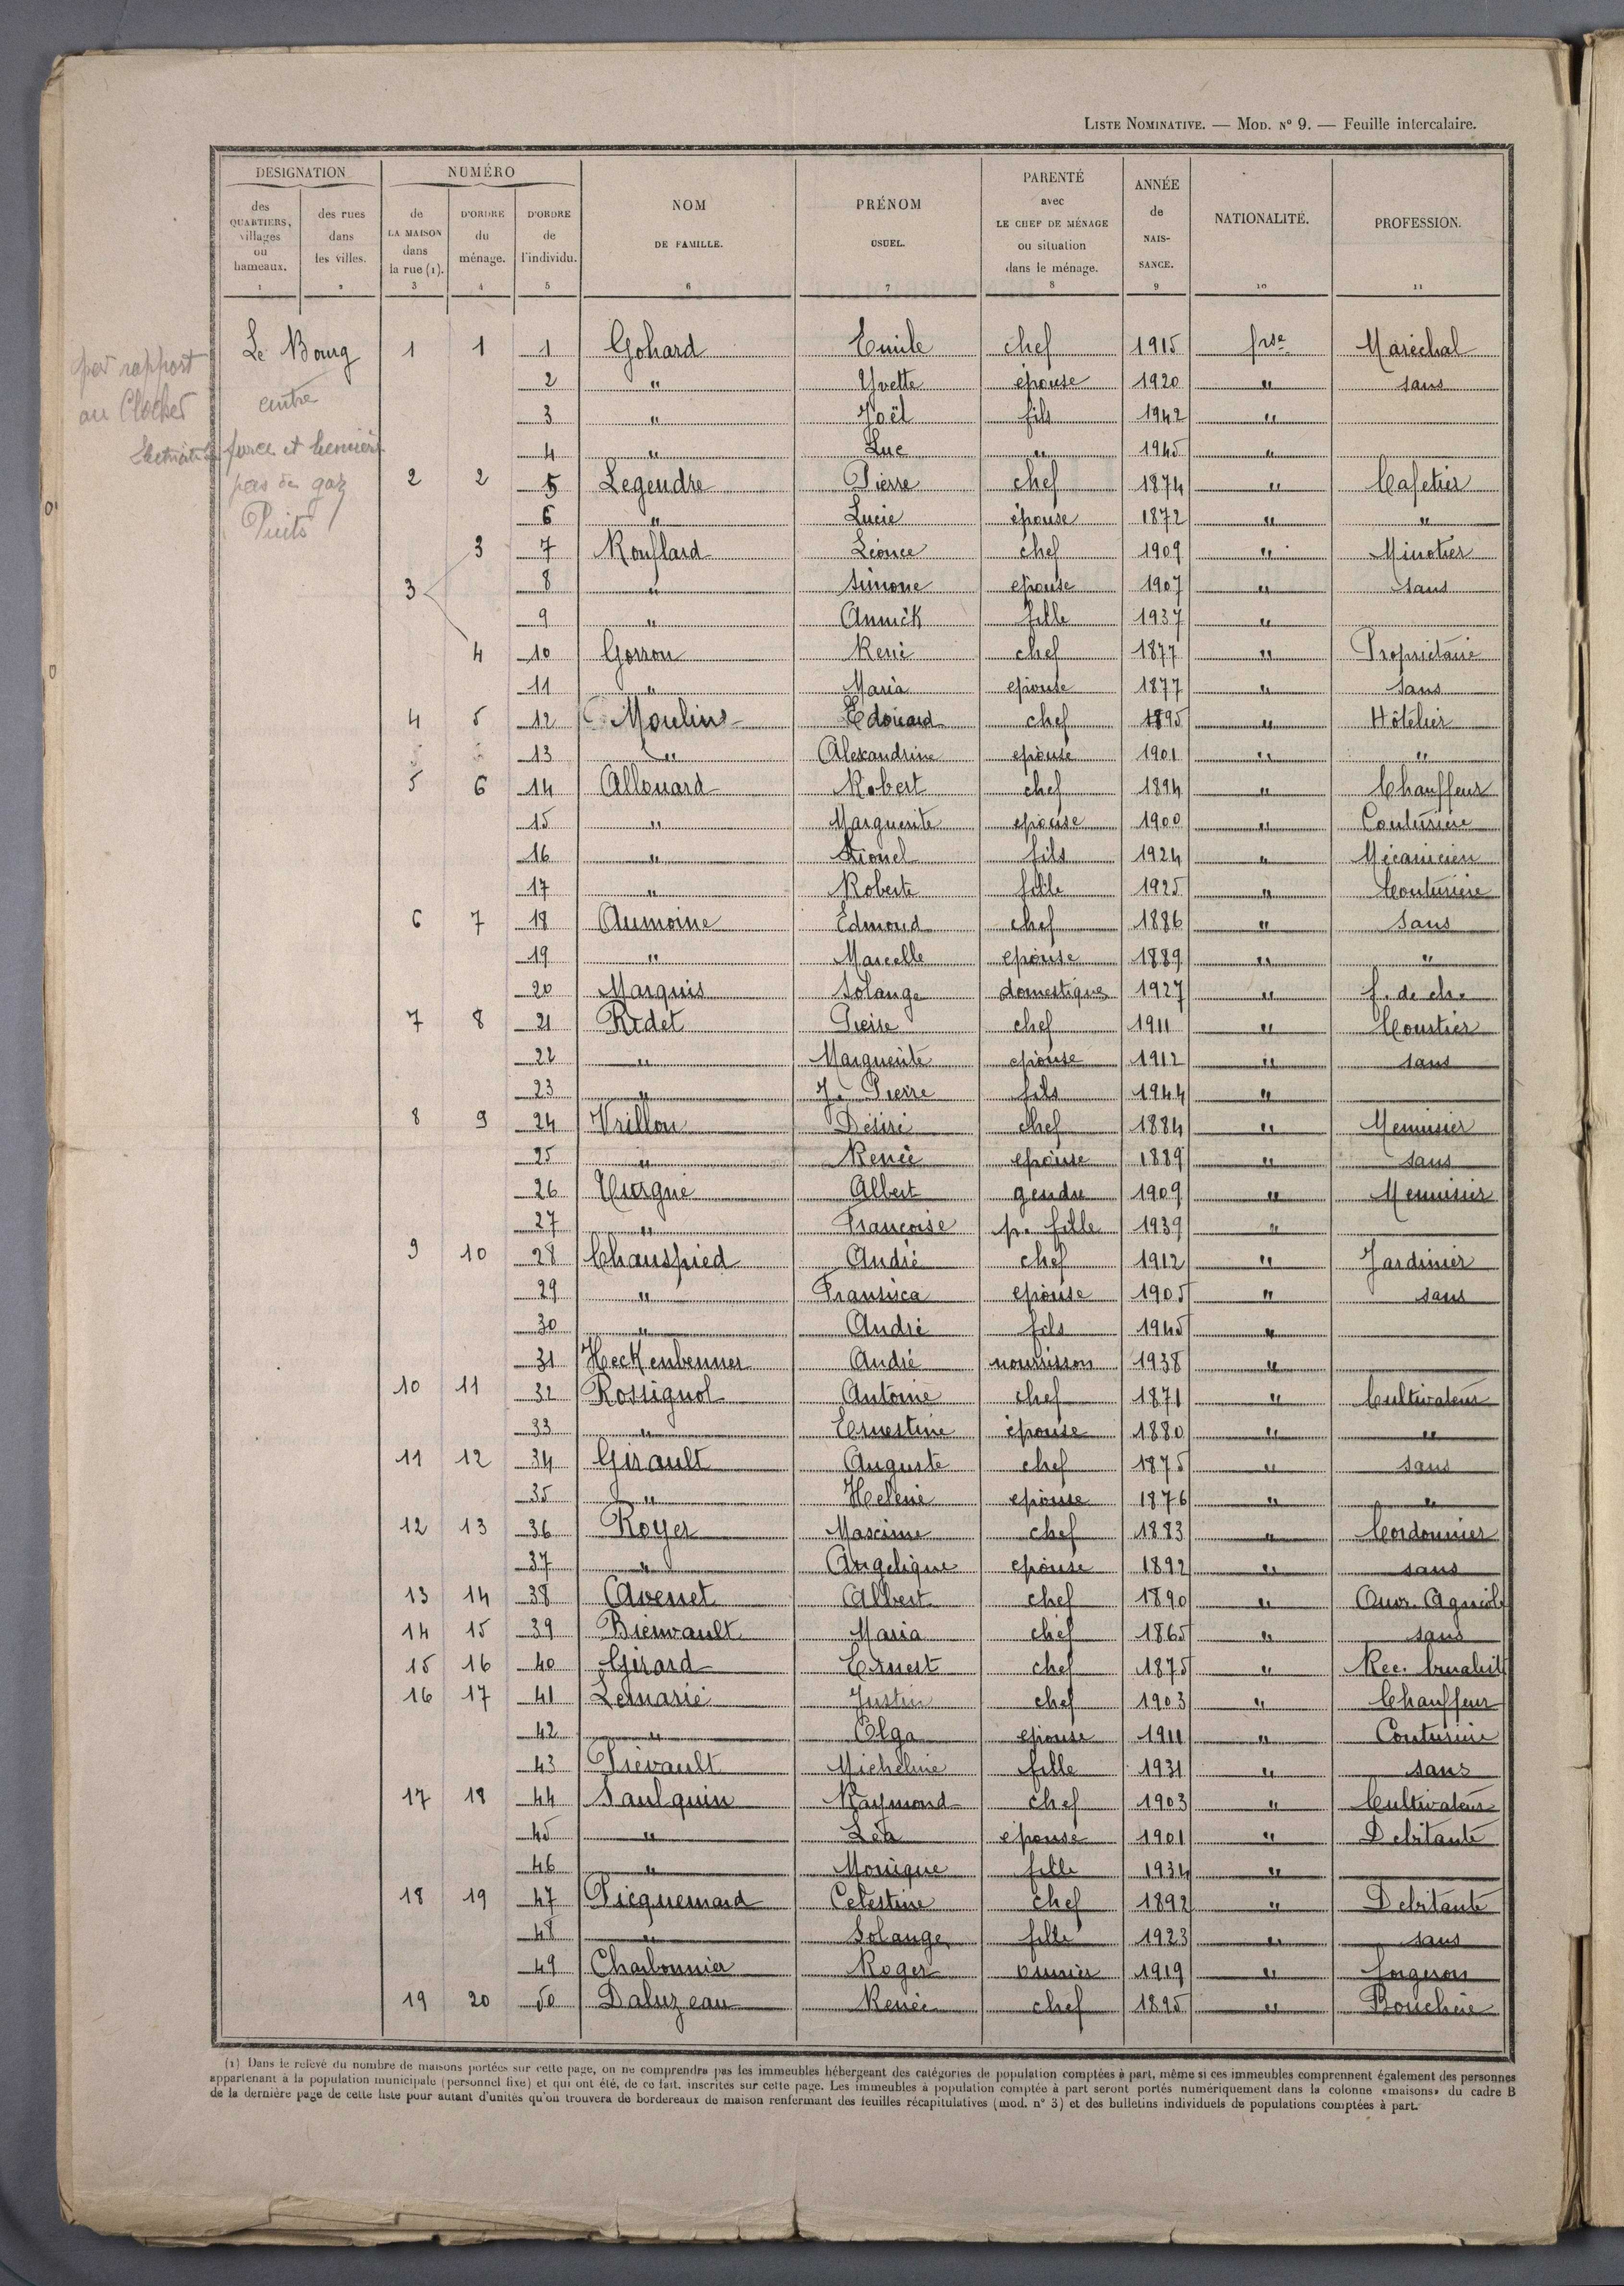 LISTE NOMINATIVE. — MOD. N° 9. — Feuille intercalaire.
DESIGNATION NUMÉRO NOM DE FAMILLE. PRÉNOM USUEL. PARENTÉ avec LE CHEF DE MÉNAGE ou situation dans le ménage. ANNÉE de NAIS-SANCE. NATIONALITÉ. PROFESSION.
des QUARTIERS, villages ou hameaux. des rues dans les villes. de LA MAISON dans la rue (1). D'ORDRE du ménage. D'ORDRE de l'individu.
1 2 3 4 5 6 7 8 9 10 11
Le Bourg 1 1 1 Gohard Emile chef 1915 frse Maréchal
par rapport
au Clocher
centre
Electricité force et lumière
pas de gaz
Puits
2 " Yvette épouse 1920 " sans
3 " Joël fils 1942 "
4 " Luc " 1945 "
2 2 5 Legendre Pierre chef 1874 " Cafetier
6 " Lucie épouse 1872 " "
3 3 7 Rouflard Léonce chef 1909 " Minotier
8 " Simone epouse 1907 " sans
9 " Annick fille 1937 "
4 10 Gorron René chef 1877 " Propriétaire
11 " Maria epouse 1877 " sans
4 5 12 Moulins Edouard chef 1895 " Hôtelier
13 " Alexandrine epouse 1901 " "
5 6 14 Allouard Robert chef 1894 " Chauffeur
15 " Marguerite epouse 1900 " Couturière
16 " Lionel fils 1924 " Mécanicien
17 " Roberte fille 1925 " Couturière
6 7 18 Aumoine Edmond chef 1886 " Sans
19 " Marcelle epouse 1889 " "
20 Marquis Solange domestique 1927 " f. de ch.
7 8 21 Ridet Pierre chef 1911 " Courtier
22 " Marguerite epouse 1912 " sans
23 " J. Pierre fils 1944 "
8 9 24 Vrillon Désiré chef 1884 " Menuisier
25 " Renée epouse 1889 " sans
26 Albert gendre 1909 " Menuisier
27 " Françoise p. fille 1939 "
9 10 28 Chauspied André chef 1912 " Jardinier
29 " Fransisca epouse 1905 " sans
30 " André fils 1945 "
31 Heckenbenner André nourrisson 1938 "
10 11 32 Rossignol Antoine chef 1871 " Cultivateur
33 " Ernestine épouse 1880 " "
11 12 34 Girault Auguste chef 1875 " sans
35 " Helène epouse 1876 " "
12 13 36 Royer Maxime chef 1883 " Cordonnier
37 " Angelique epouse 1892 " sans
13 14 38 Avenet Albert chef 1890 " Ouv. Agricole
14 15 39 Bienvault Maria chef 1865 " sans
15 16 40 Girard Ernest chef 1875 " Rec. buraliste
16 17 41 Lemarié Justin chef 1903 " Chauffeur
42 " Olga epouse 1911 " Couturière
43 Prévault Micheline fille 1931 " sans
17 18 44 Saulquin Raymond chef 1903 " Cultivateur
45 " Léa épouse 1901 " Debitante
46 " Monique fille 1934 "
18 19 47 Picquemard Celestine chef 1892 " Debitante
48 " Solange fille 1923 " sans
49 Charbonnier Roger ouvrier 1919 " forgeron
19 20 50 Daluzeau Renée chef 1895 " Bouchère
(1) Dans le relevé du nombre de maisons portées sur cette page, on ne comprendra pas les immeubles hébergeant des catégories de population comptées à part, même si ces immeubles comprennent également des personnes
appartenant à la population municipale (personnel fixe) et qui ont été, de ce fait, inscrites sur cette page. Les immeubles à population comptée à part seront portés numériquement dans la colonne «maisons» du cadre B
de la dernière page de cette liste pour autant d'unités qu'on trouvera de bordereaux de maison renfermant des feuilles récapitulatives (mod. n° 3) et des bulletins individuels de populations comptées à part.